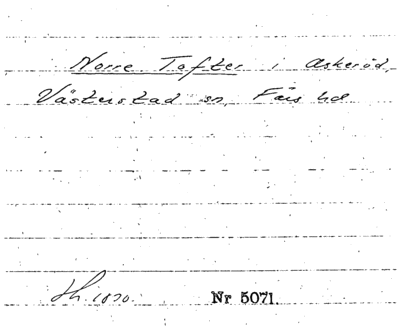 Norre Tofter i Askeröd,
Västerstad sn, Färs hd
Nr 5071.